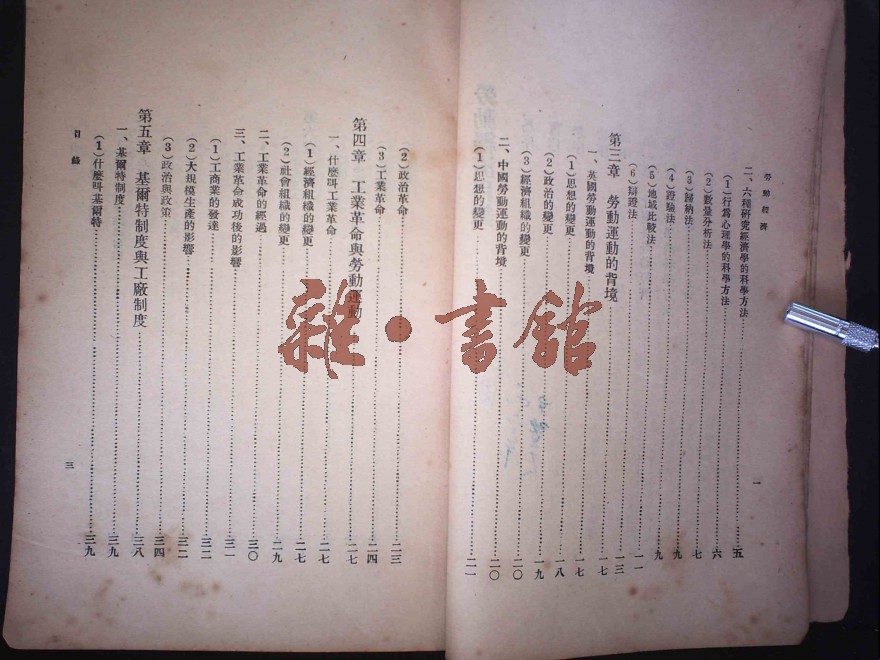 勞動經濟
二、六種研究經濟學的科學方法……五
(1)行為心理學的科學方法
(2)數量分析法……六
(3)歸納法……七
(4)證驗法……九
(5)地域比較法……九
(6)辯證法……一一
第三章 勞動運動的背境……一三
一、英國勞動運動的背境……一七
(1)思想的變更……一七
(2)政治的變更……一八
(3)經濟組織的變更……一九
二、中國勞動運動的背境……二〇
(1)思想的變更……二一
一
(2)政治革命……二三
(3)工業革命……二四
第四章 工業革命與勞動運動……二七
一、什麼叫工業革命……二七
(1)經濟組織的變更……二七
(2)社會組織的變更……二九
二、工業革命的經過……三〇
三、工業革命成功後的影響……三一
(1)工商業的發達……三二
(2)大規模生產的影響……三三
(3)政治與政策……三四
第五章 基爾特制度與工廠制度……三八
一、基爾特制度……三九
(1)什麼叫基爾特……三九
目錄
三
雜·書館